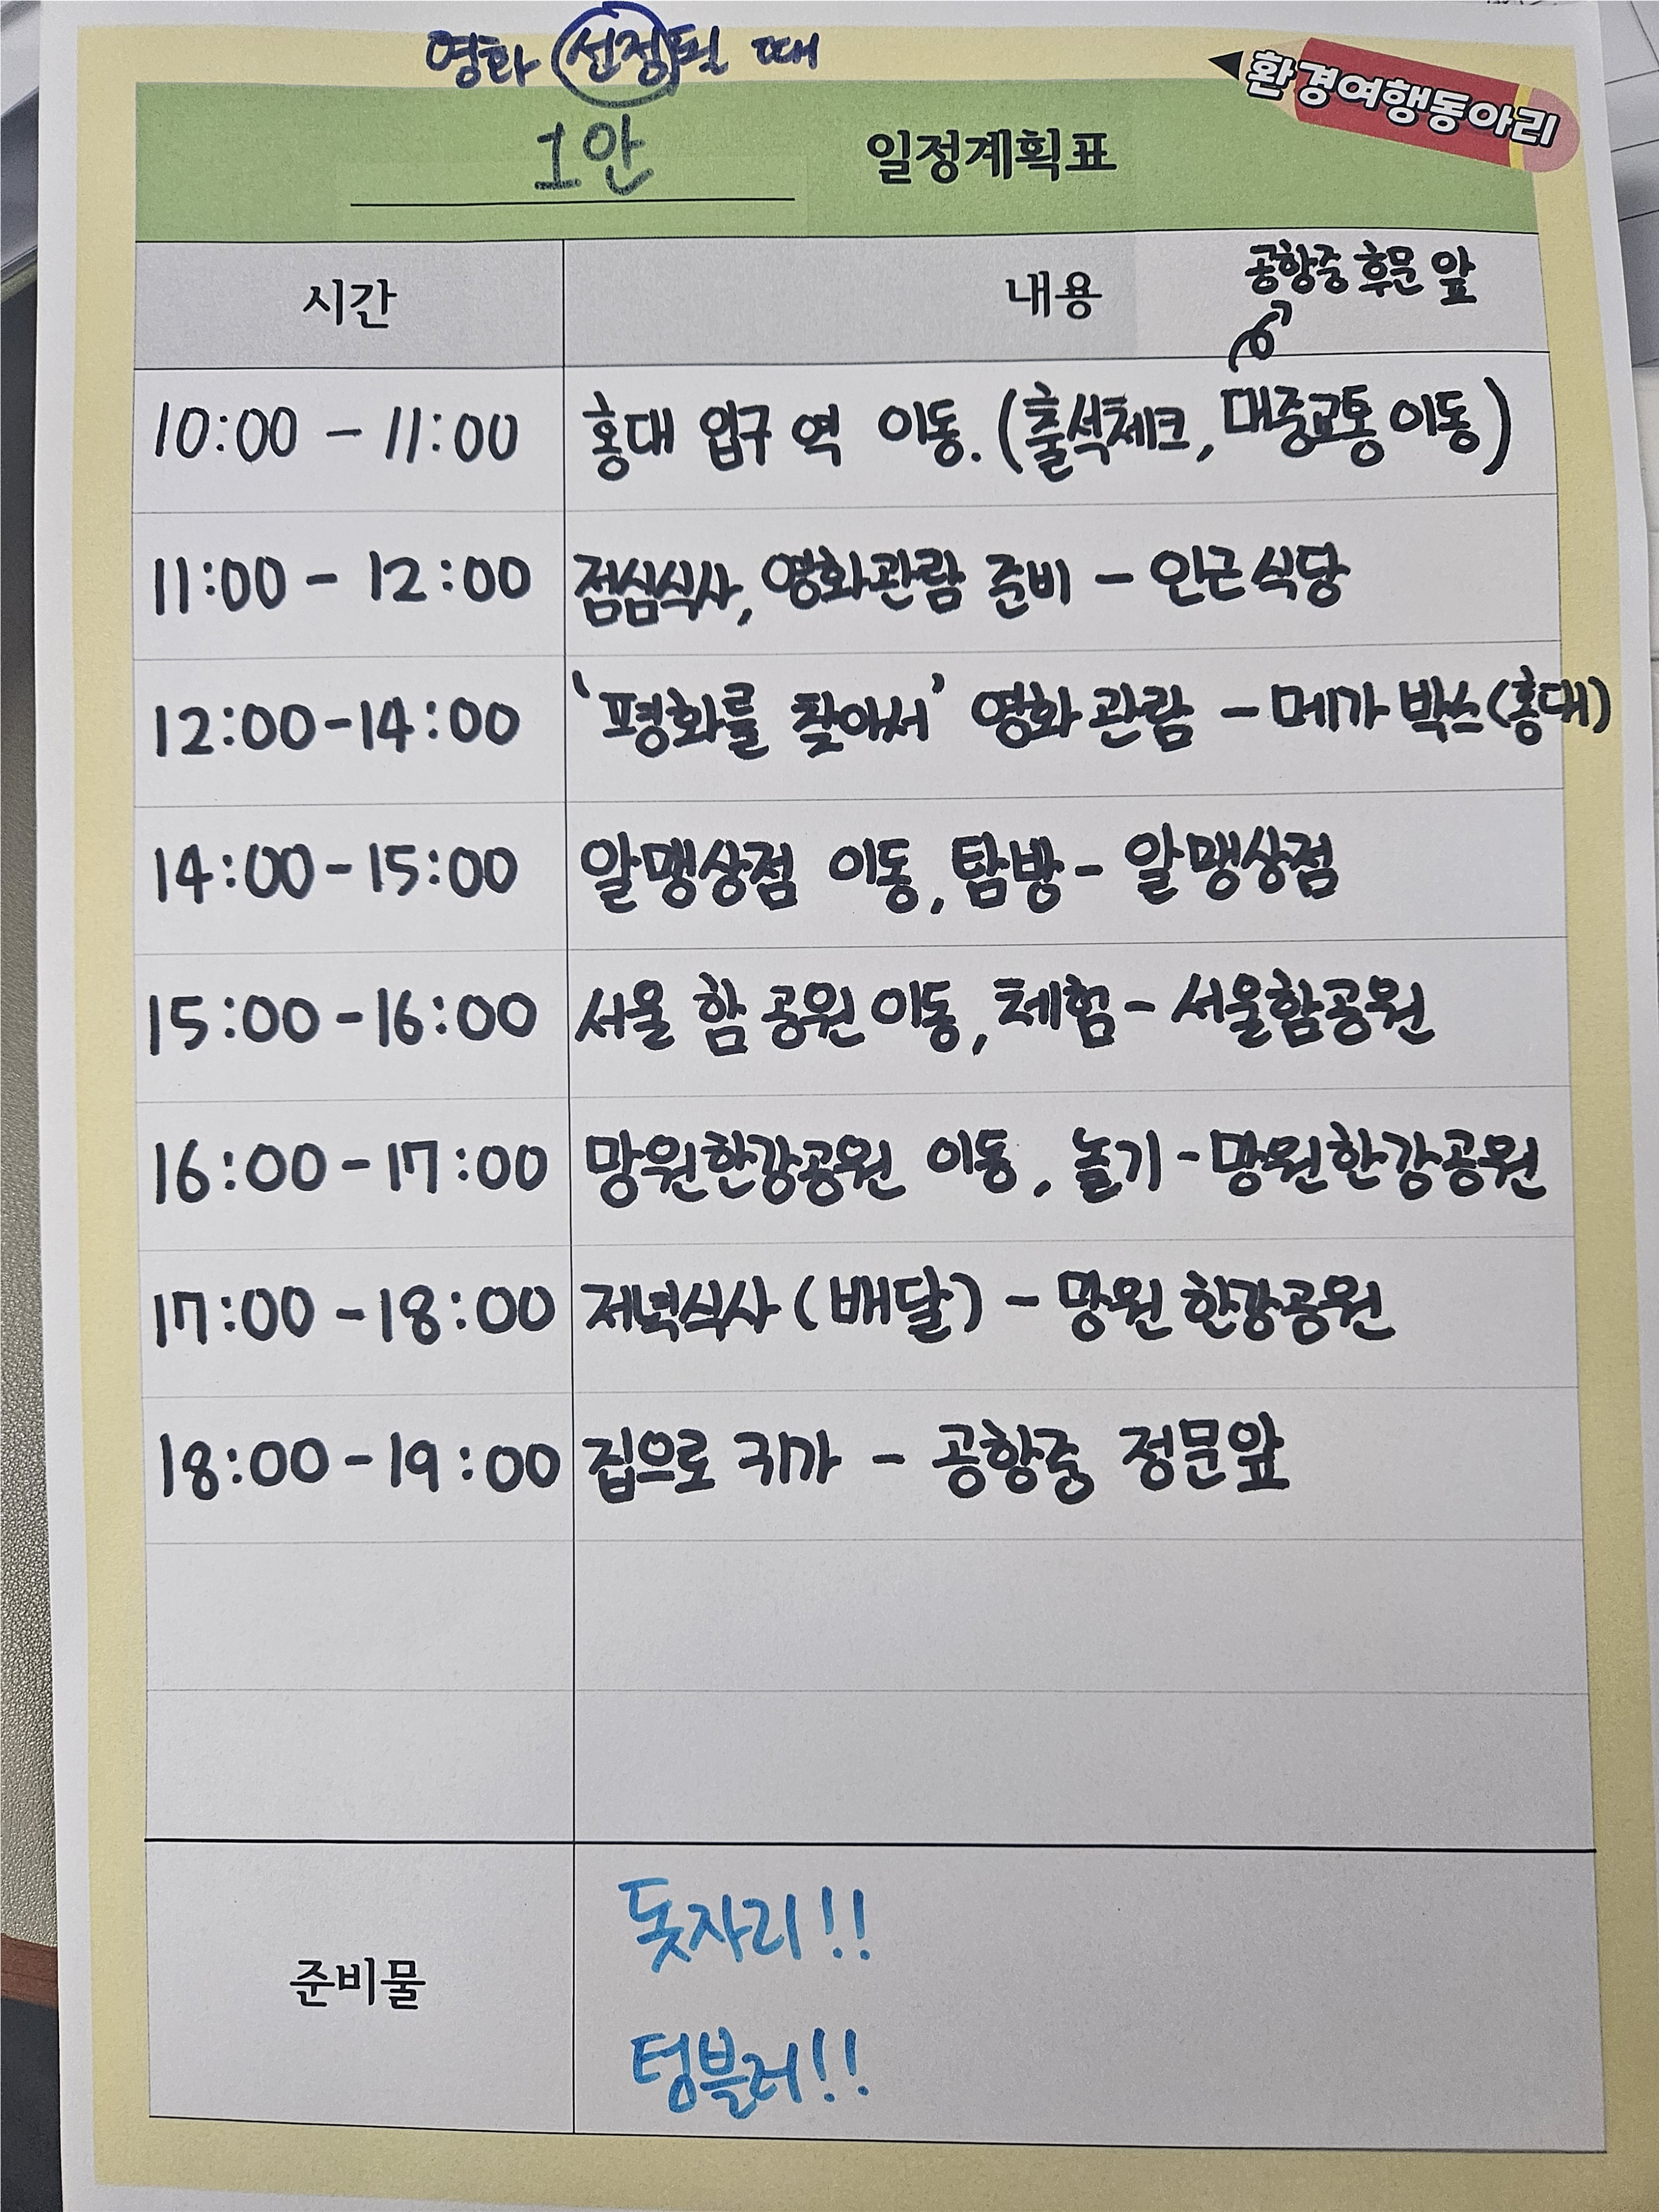 영화 선정될 때
환경여행동아리
1안 일정계획표
시간 내용
공항중 후문 앞
10:00 - 11:00 홍대 입구 역 이동. (출석체크, 대중교통 이동)
11:00 - 12:00 점심식사, 영화관람 준비 - 인근식당
12:00-14:00 '평화를 찾아서' 영화관람 - 메가박스(홍대)
14:00-15:00 알맹상점 이동, 탐방 - 알맹상점
15:00-16:00 서울 함 공원 이동, 체험 - 서울함공원
16:00-17:00 망원한강공원 이동, 놀기 - 망원한강공원
17:00-18:00 저녁식사 (배달) - 망원한강공원
18:00-19:00 집으로 귀가 - 공항중 정문앞
준비물
돗자리!!
텀블러!!